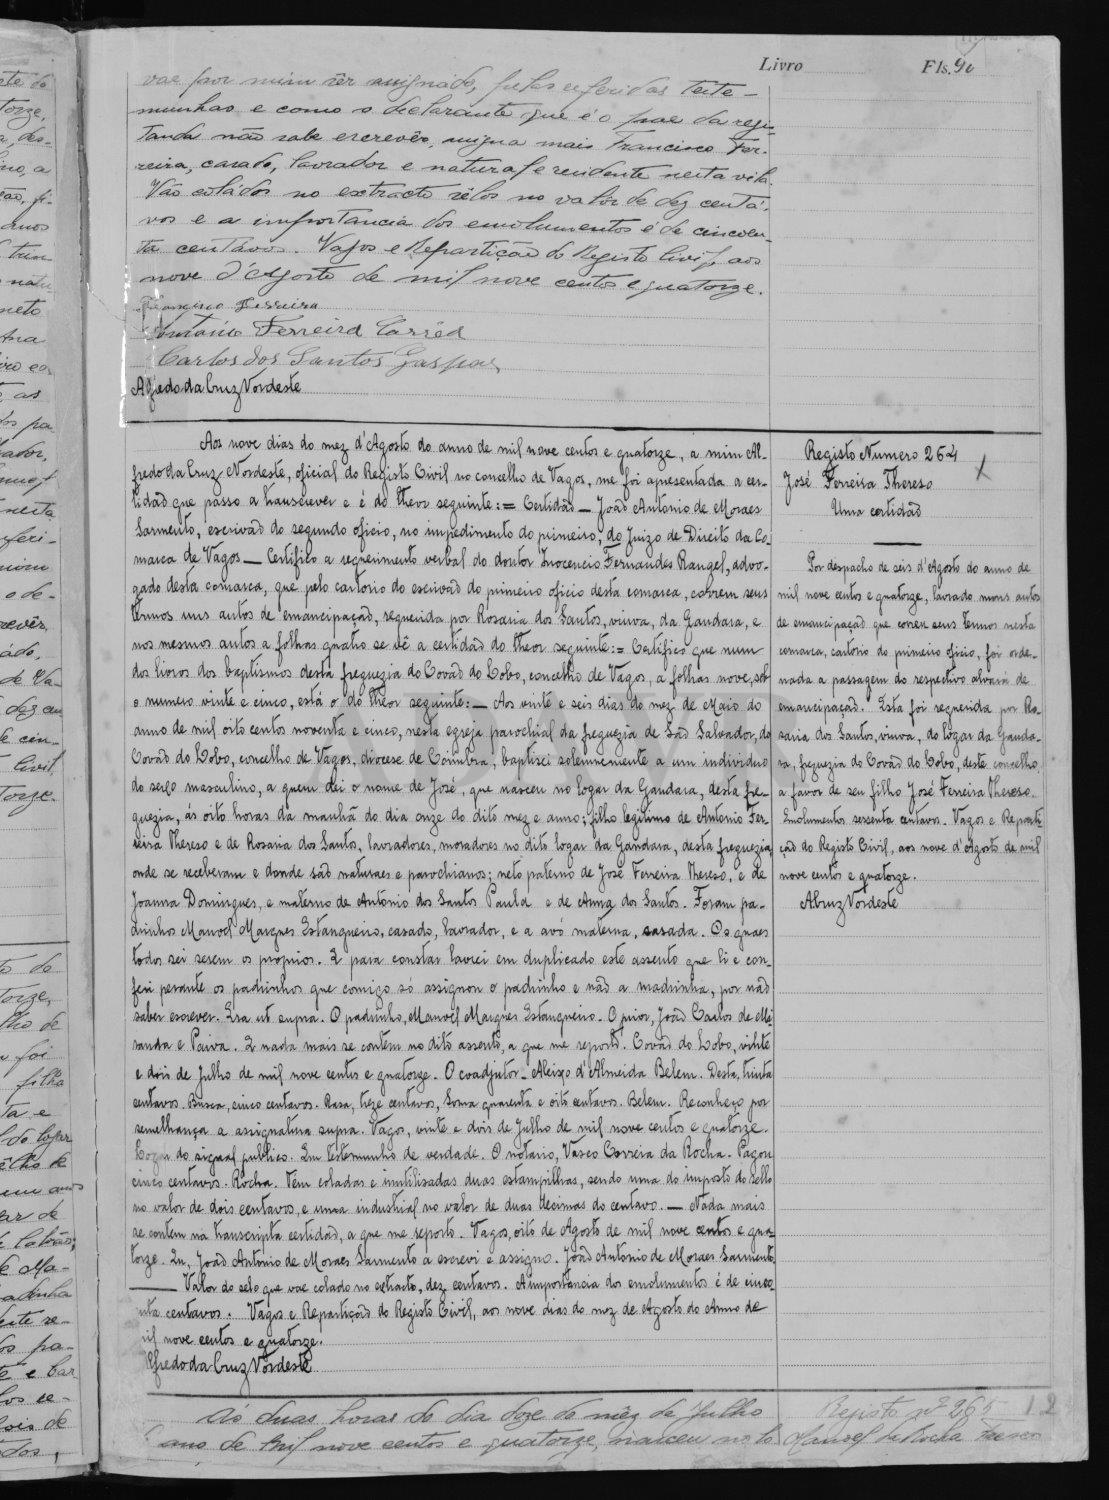 Livro Fls. 90
vae por mim ser assignado, pelas referidas teste-
munhas e como o declarante que é o pae da regis-
tanda não sabe escrevêr, assigna mais Francisco Fer-
reira, casado, lavrador e natural e residente nesta vila.
Vão coládos no extracto sêlos no valor de dez centá-
vos e a importancia dos emolumentos é de cincoen-
ta centávos. Vagos e Repartição do Registo Civil, aos
nove d'Agosto de mil nove centos e quatorze.
Francisco Ferreira
Antonio Ferreira
Carlos dos Santos Gaspar
Alfredo da Cruz Nordeste
Aos nove dias do mez d'Agosto do anno de mil nove centos e quatorze, a mim Al-
fredo da Cruz Nordeste, oficial do Registo Civil no concelho de Vagos, me foi apresentada a cer-
tidaõ que passo a transcrever e é do theor seguinte:= Certidaõ — Joaõ Antonio de Moraes
Sarmento, escrivaõ do segundo oficio, no impedimento do primeiro, do Juizo de Direito da Co-
marca de Vagos — Certifico a requerimento verbal do doutor Inocencio Fernandes Rangel, advo-
gado desta comarca, que pelo cartorio do escrivaõ do primeiro oficio desta comarca, correm seus
termos uns autos de emancipaçaõ, requerida por Rosaria dos Santos, viuva, da Gandara, e
nos mesmos autos a folhas quatro se vê a certidaõ do theor seguinte:= Certifico que num
dos livros dos baptismos desta freguezia do Covaõ do Lobo, concelho de Vagos, a folhas nove, sob
o numero vinte e cinco, está o do theor seguinte: — Aos vinte e seis dias do mez de Maio do
anno de mil oito centos noventa e cinco, nesta egreja parochial da freguezia de Saõ Salvador, do
Covaõ do Lobo, concelho de Vagos, diocese de Coimbra, baptisei solemnemente a um individuo
do sexo masculino, a quem dei o nome de José, que nasceu no logar da Gandara, desta fre-
guezia, ás oito horas da manhã do dia onze do dito mez e anno; filho legitimo de Antonio Fer-
reira Thereso e de Rosaria dos Santos, lavradores, moradores no dito logar da Gandara, desta freguezia,
onde se receberam e donde saõ naturaes e parochianos; neto paterno de José Ferreira Thereso, e de
Joanna Domingues, e materno de Antonio dos Santos Paula e de Anna dos Santos. Foram pa-
drinhos Manoel Marques Estangueiro, casado, lavrador, e a avó materna, casada. Os quaes
todos sei serem os proprios. E para constar lavrei em duplicado este assento que li e con-
feri perante os padrinhos que comigo só assignou o padrinho e naõ a madrinha, por naõ
saber escrever. Era ut supra. O padrinho, Manoel Marques Estangueiro. O prior, Joaõ Carlos de Mi-
randa e Paiva. E nada mais se contém no dito assento, a que me reporto. Covaõ do Lobo, vinte
e dois de Julho de mil nove centos e quatorze. O coadjutor - Aleixo d'Almeida Belem. Desta, trinta
centavos. Busca, cinco centavos. Rasa, treze centavos, Soma quarenta e oito centavos. Belem. Reconheço por
semelhança a assignatura supra. Vagos, vinte e dois de Julho de mil nove centos e quatorze.
Logar do signal publico. Em testemunho de verdade. O notario, Vasco Correia da Rocha. Pagou
cinco centavos. Rocha. Tem coladas e inutilisadas duas estampilhas, sendo uma do imposto do Sello
no valor de dois centavos, e uma industrial no valor de duas decimas do centavo. — Nada mais
se contem na transcripta certidaõ, a que me reporto. Vagos, oito de Agosto de mil nove centos e qua-
torze. Eu, Joaõ Antonio de Moraes Sarmento a escrevi e assigno. Joaõ Antonio de Moraes Sarmento.
— Valor do selo que vae colado no extracto, dez centavos. A importancia dos emolumentos é de cinco-
enta centavos. Vagos e Repartiçaõ do Registo Civil, aos nove dias do mez de Agosto do Anno de
mil nove centos e quatorze.
Alfredo da Cruz Nordeste
Registo Numero 264
José Ferreira Thereso
Uma certidaõ
Por despacho de seis d'Agosto do anno de
mil nove centos e quatorze, lavrado nuns autos
de emancipaçaõ que correm seus termos nesta
comarca, cartorio do primeiro oficio, foi orde-
nada a passagem do respectivo alvará de
emancipaçaõ. Esta foi requerida por Ro-
saria dos Santos, viuva, do lôgar da Ganda-
ra, freguezia do Covaõ do Lobo, deste concelho,
a favor de seu filho José Ferreira Thereso.
Emolumentos sessenta centavos. Vagos e Reparti-
çaõ do Registo Civil, aos nove d'Agosto de mil
nove centos e quatorze.
ACruz Nordeste
Ás duas horas do dia doze do mêz de Julho
ano de mil nove centos e quatorze, nasceu no lo
Registo nº 265 12
Manoel da Rocha